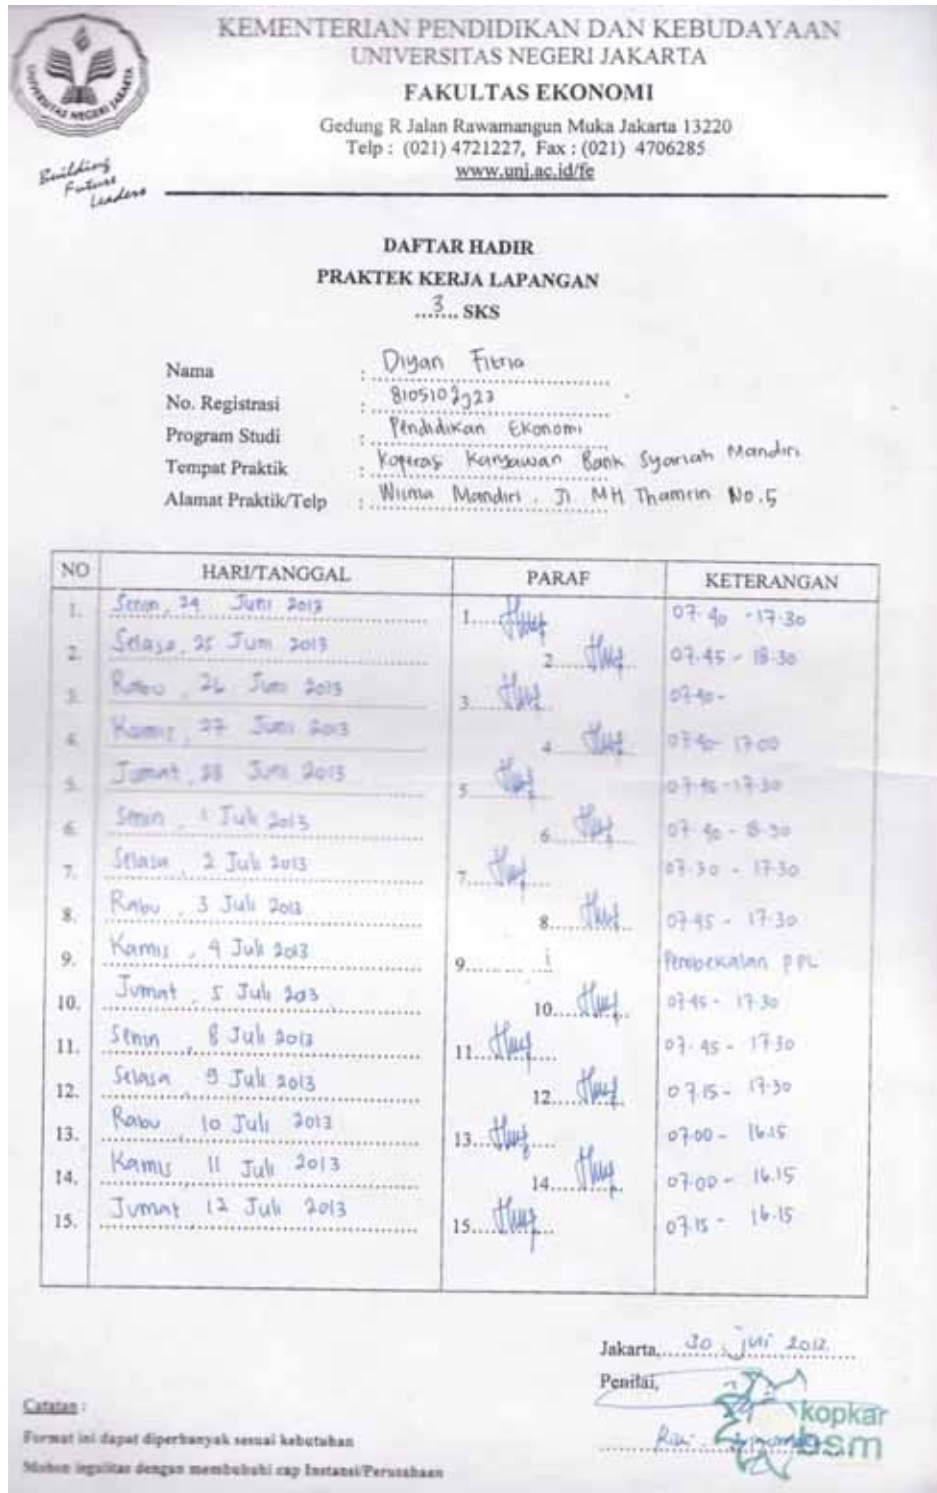 KEMENTERIAN PENDIDIKAN DAN KEBUDAYAAN
UNIVERSITAS NEGERI JAKARTA
FAKULTAS EKONOMI
Gedung R Jalan Rawamangun Muka Jakarta 13220
Telp : (021) 4721227, Fax : (021) 4706285
www.unj.ac.id/fe
UNIVERSITAS NEGERI JAKARTA
Building
Future
Leaders
DAFTAR HADIR
PRAKTEK KERJA LAPANGAN
...3... SKS
Nama : Diyan Fitria
No. Registrasi :
Program Studi : Pendidikan Ekonomi
Tempat Praktik : Koperasi Karyawan Bank Syariah Mandiri
Alamat Praktik/Telp : Wisma Mandiri. Jl MH Thamrin No.5
NO HARI/TANGGAL PARAF KETERANGAN
1. Senin, 24 Juni 2013 1. 07.40 - 17.30
2. Selasa, 25 Juni 2013 2. 07.45 - 18.30
3. Rabu, 26 Juni 2013 3. 07.40 -
4. Kamis, 27 Juni 2013 4. 07.40 - 17.00
5. Jumat, 28 Juni 2013 5. 07.45 - 17.30
6. Senin, 1 Juli 2013 6. 07.40 - 8.30
7. Selasa, 2 Juli 2013 7. 07.30 - 17.30
8. Rabu, 3 Juli 2013 8. 07.45 - 17.30
9. Kamis, 4 Juli 2013 9. Pembekalan PPL
10. Jumat, 5 Juli 2013 10. 07.45 - 17.30
11. Senin, 8 Juli 2013 11. 07.45 - 17.30
12. Selasa 9 Juli 2013 12. 07.15 - 17.30
13. Rabu 10 Juli 2013 13. 07.00 - 16.15
14. Kamis 11 Juli 2013 14. 07.00 - 16.15
15. Jumat 12 Juli 2013 15. 07.15 - 16.15
Jakarta, 30
Penilai,
kopkar
bsm
Catatan :
Format ini dapat diperbanyak sesuai kebutuhan
Mohon legalitas dengan membubuhi cap Instansi/Perusahaan